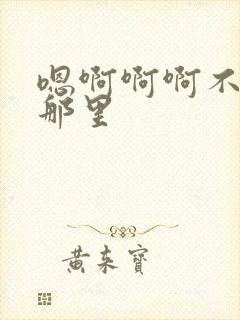 嗯啊啊啊不
那里
黄来宝